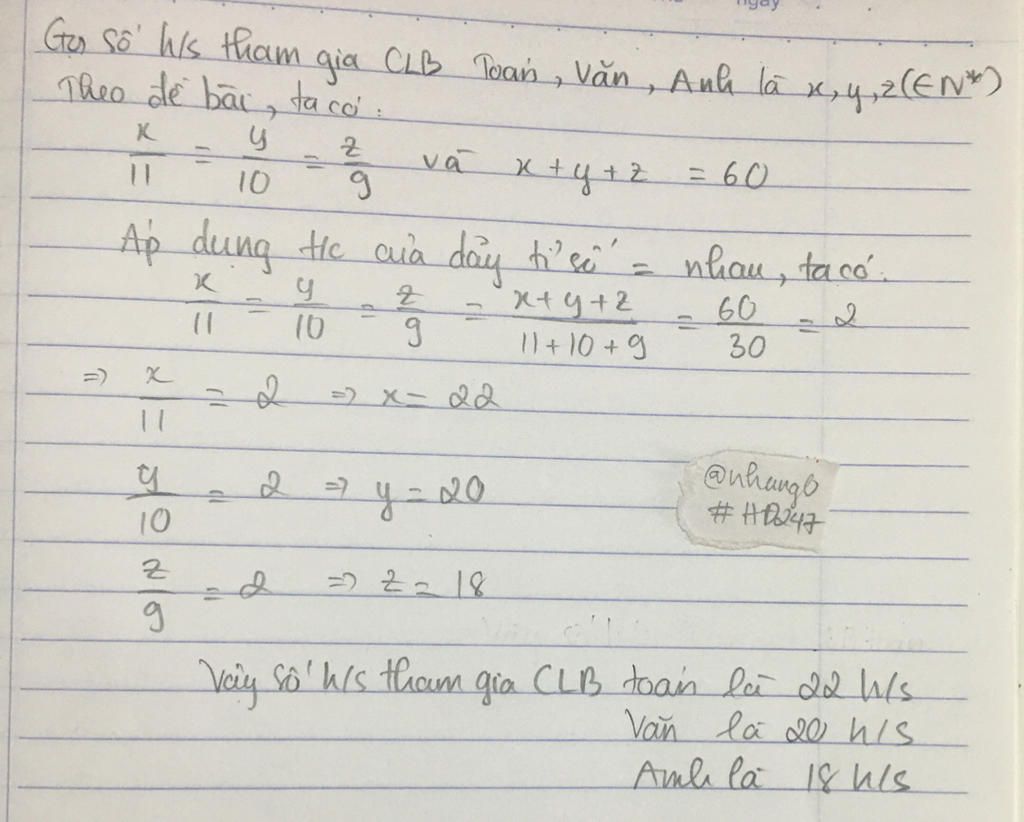 Gọi số h/s tham gia CLB Toán, Văn, Anh là x, y, z (∈ N*)
Theo đề bài, ta có:
x/11 = y/10 = z/9 và x + y + z = 60
Áp dụng t/c của dãy tỉ số = nhau, ta có:
x/11 = y/10 = z/9 = x+y+z/11+10+9 = 60/30 = 2
=> x/11 = 2 => x = 22
y/10 = 2 => y = 20
@nhang6
#HD247
z/9 = 2 => z = 18
Vậy số h/s tham gia CLB toán là 22 h/s
Văn là 20 h/s
Anh là 18 h/s